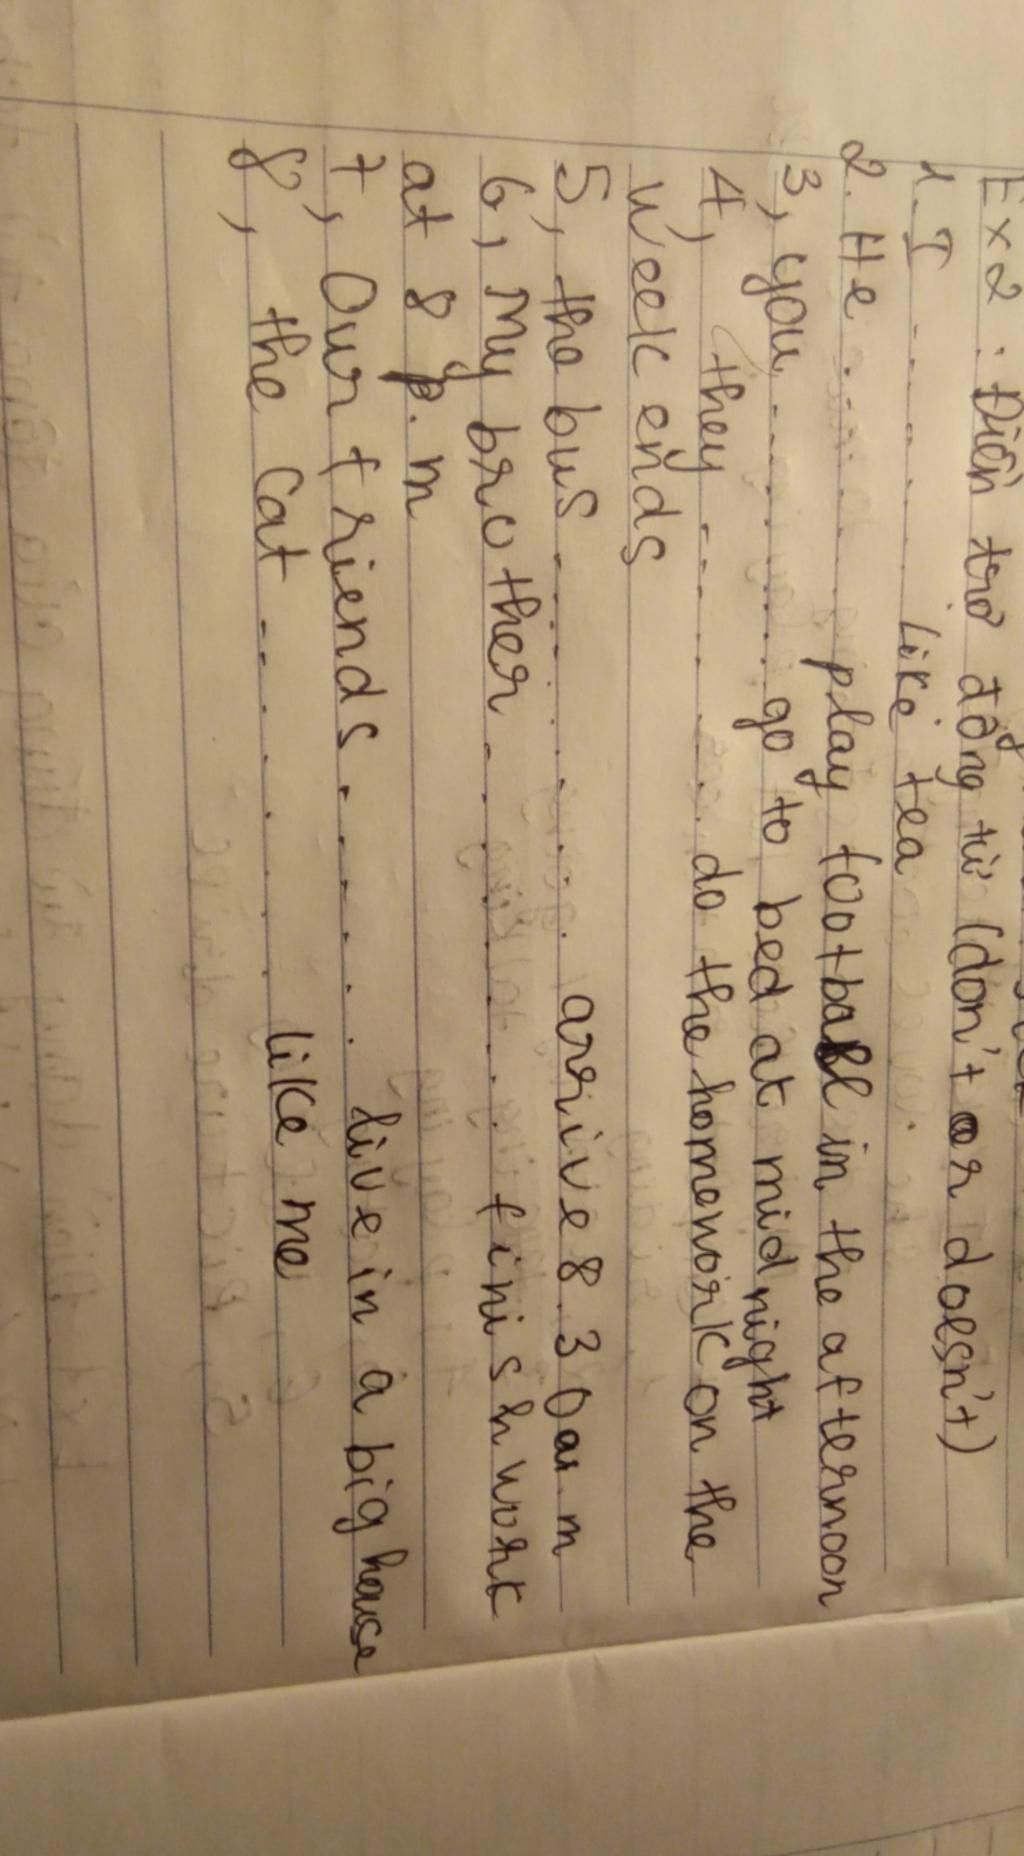 Ex2: Điền trợ động từ (don't or doesn't)
1. I ........ like tea
2. He ........ play football in the afternoon
3, you ........ go to bed at midnight
4, they ........ do the homework on the
week ends
5, the bus ........ arrive 8.30 a.m
6, My brother ........ finish work
at 8 p.m
7, Our friends ........ live in a big house
8, the cat ........ like me